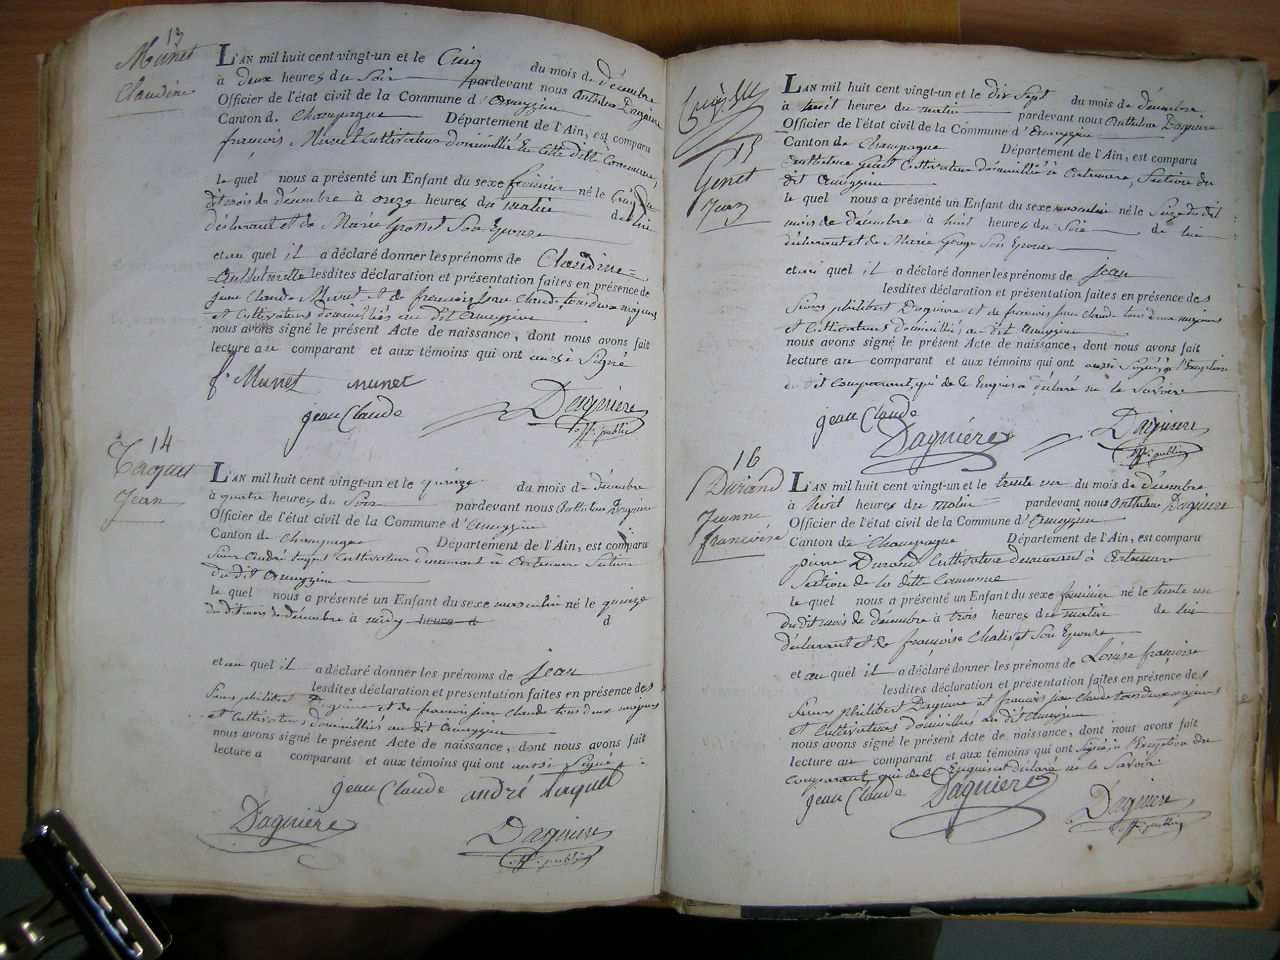 13
Munet
Claudine
L'AN mil huit cent vingt-un et le Cinq du mois de décembre
à deux heures du Soir pardevant nous Anthelme Dagnière
Officier de l'état civil de la Commune d'
Canton de Champagne Département de l'Ain, est comparu
françois Munet Cultivateur domicilié en cette dite Commune,
le quel nous a présenté un Enfant du sexe feminin né le Cinq du
dit mois de décembre à onze heures du matin de lui
déclarant et de Marie Son Epouse
et au quel il a déclaré donner les prénoms de Claudine
lesdites déclaration et présentation faites en présence de
jean Claude Munet et de francois jean Claude tous deux majeurs
et Cultivateurs domiciliés au dit
nous avons signé le présent Acte de naissance, dont nous avons fait
lecture au comparant et aux témoins qui ont aussi Signé
f. Munet munet
jean Claude Dagniere
off. public
14
jean
L'AN mil huit cent vingt-un et le quinze du mois de décembre
à quatre heures du Soir pardevant nous Anthelme Dagniere
Officier de l'état civil de la Commune d'
Canton de Champagne Département de l'Ain, est comparu
Sieur André Cultivateur demeurant à Section
du dit
le quel nous a présenté un Enfant du sexe masculin né le quinze
du dit mois de décembre à midy heures d d
et au quel il a déclaré donner les prénoms de jean
lesdites déclaration et présentation faites en présence des
Sieurs philibert Dagniere et de francois jean Claude tous deux majeurs
et Cultivateurs domiciliés au dit
nous avons signé le présent Acte de naissance, dont nous avons fait
lecture a comparant et aux témoins qui ont aussi Signé
jean Claude andré
Dagnière Dagniere
off. public
15
Genet
Jean
L'AN mil huit cent vingt-un et le dix Sept du mois de décembre
à heures du matin pardevant nous Anthelme Dagniere
Officier de l'état civil de la Commune d'
Canton de Champagne Département de l'Ain, est comparu
Anthelme Genet Cultivateur domicilié à Section du
dit
le quel nous a présenté un Enfant du sexe masculin né le Seize du dit
mois de décembre à huit heures du Soir de lui
déclarant et de Marie Son Epouse
et au quel il a déclaré donner les prénoms de jean
lesdites déclaration et présentation faites en présence des
Sieurs philibert Dagniere et de francois jean Claude tous deux majeurs
et Cultivateurs domiciliés au dit
nous avons signé le présent Acte de naissance, dont nous avons fait
lecture au comparant et aux témoins qui ont aussi Signé à l'Exception
du dit Comparant, qui de ce Enquis a déclaré ne le Savoir
jean Claude
Dagnière Dagniere
off. public
16
Durand
Jeanne
francoise
L'AN mil huit cent vingt-un et le trente un du mois de décembre
à huit heures du matin pardevant nous Anthelme Dagniere
Officier de l'état civil de la Commune d'
Canton de Champagne Département de l'Ain, est comparu
pierre Durand Cultivateur demeurant à
Section de la dite Commune
le quel nous a présenté un Enfant du sexe féminin né le trente un
du dit mois de décembre à trois heures du matin de lui
déclarant et de françoise Son Epouse
et au quel il a déclaré donner les prénoms de Louise françoise
lesdites déclaration et présentation faites en présence des
Sieurs philibert Dagniere et francois jean Claude tous deux majeurs
et Cultivateurs domiciliés au dit
nous avons signé le présent Acte de naissance, dont nous avons fait
lecture au comparant et aux témoins qui ont Signé, à l'Exception du
comparant, qui de ce Enquis a déclaré ne le Savoir
jean Claude Dagnière Dagniere
off. public